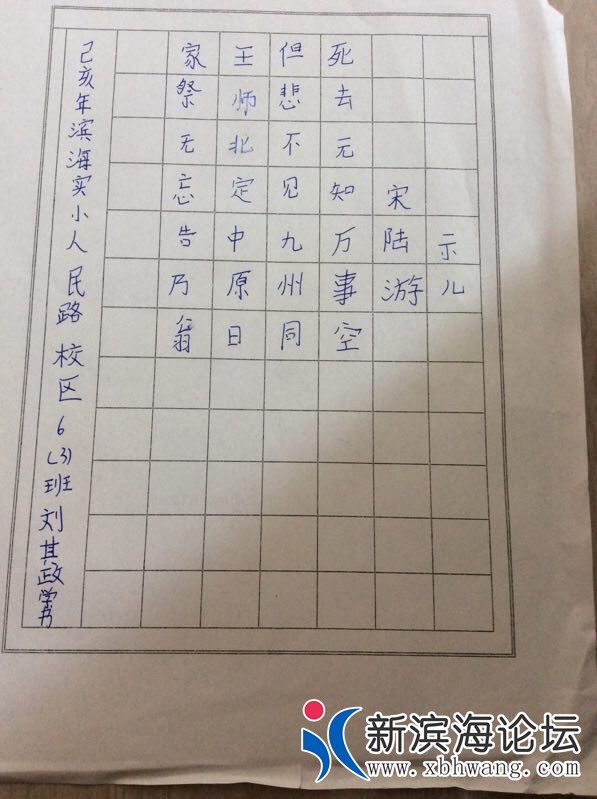 示儿
宋陆游
死去元知万事空
但悲不见九州同
王师北定中原日
家祭无忘告乃翁
己亥年滨海实小人民路校区6(3)班刘其政学书
新滨海论坛
www.xbhwang.com